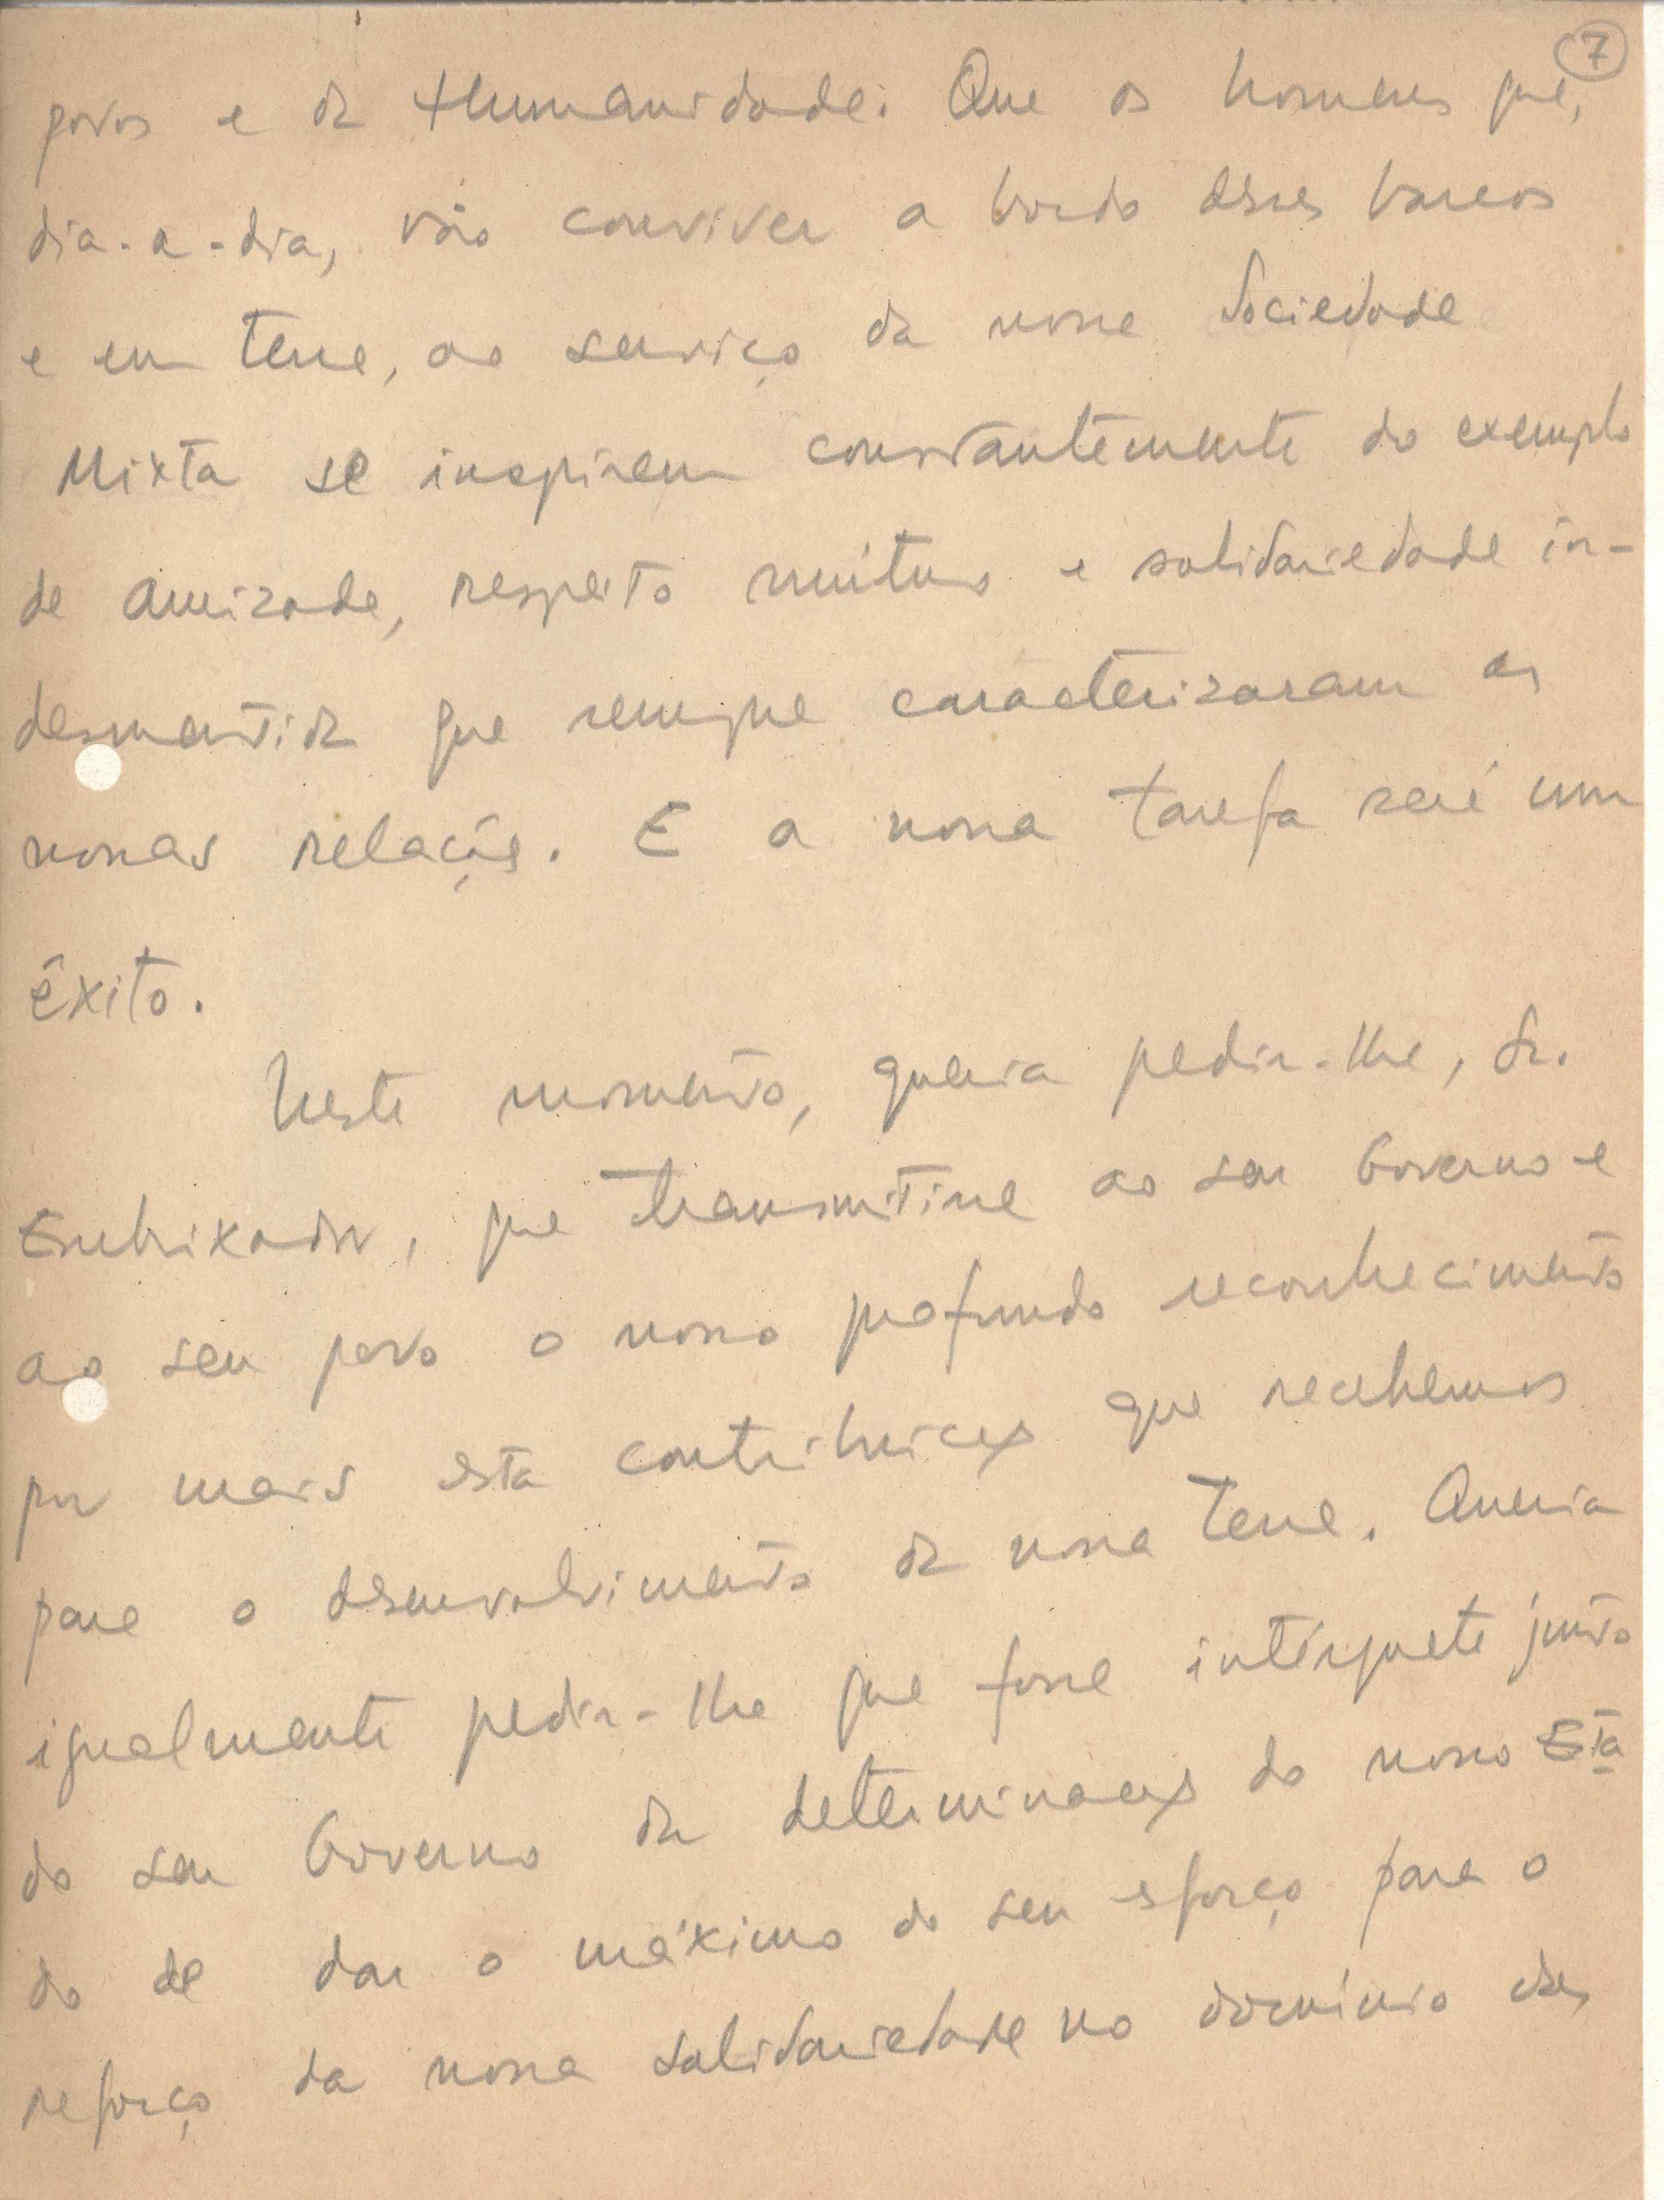 7
povos e da Humanidade. Que os homens que,
dia-a-dia, vão conviver a bordo desses barcos
e em terra, ao serviço da nossa Sociedade
Mixta se inspirem constantemente do exemplo
de amizade, respeito mútuo e solidariedade in-
desmentida que sempre caracterizaram as
nossas relações. E a nossa tarefa será um
êxito.
Neste momento, queria pedir-lhe, Sr.
Embaixador, que transmitisse ao seu Governo e
ao seu povo o nosso profundo reconhecimento
por mais esta contribuição que recebemos
para o desenvolvimento da nossa terra. Queria
igualmente pedir-lhe que fosse intérprete junto
do seu Governo da determinação do nosso Esta
do de dar o máximo do seu esforço para o
reforço da nossa solidariedade no domínio das